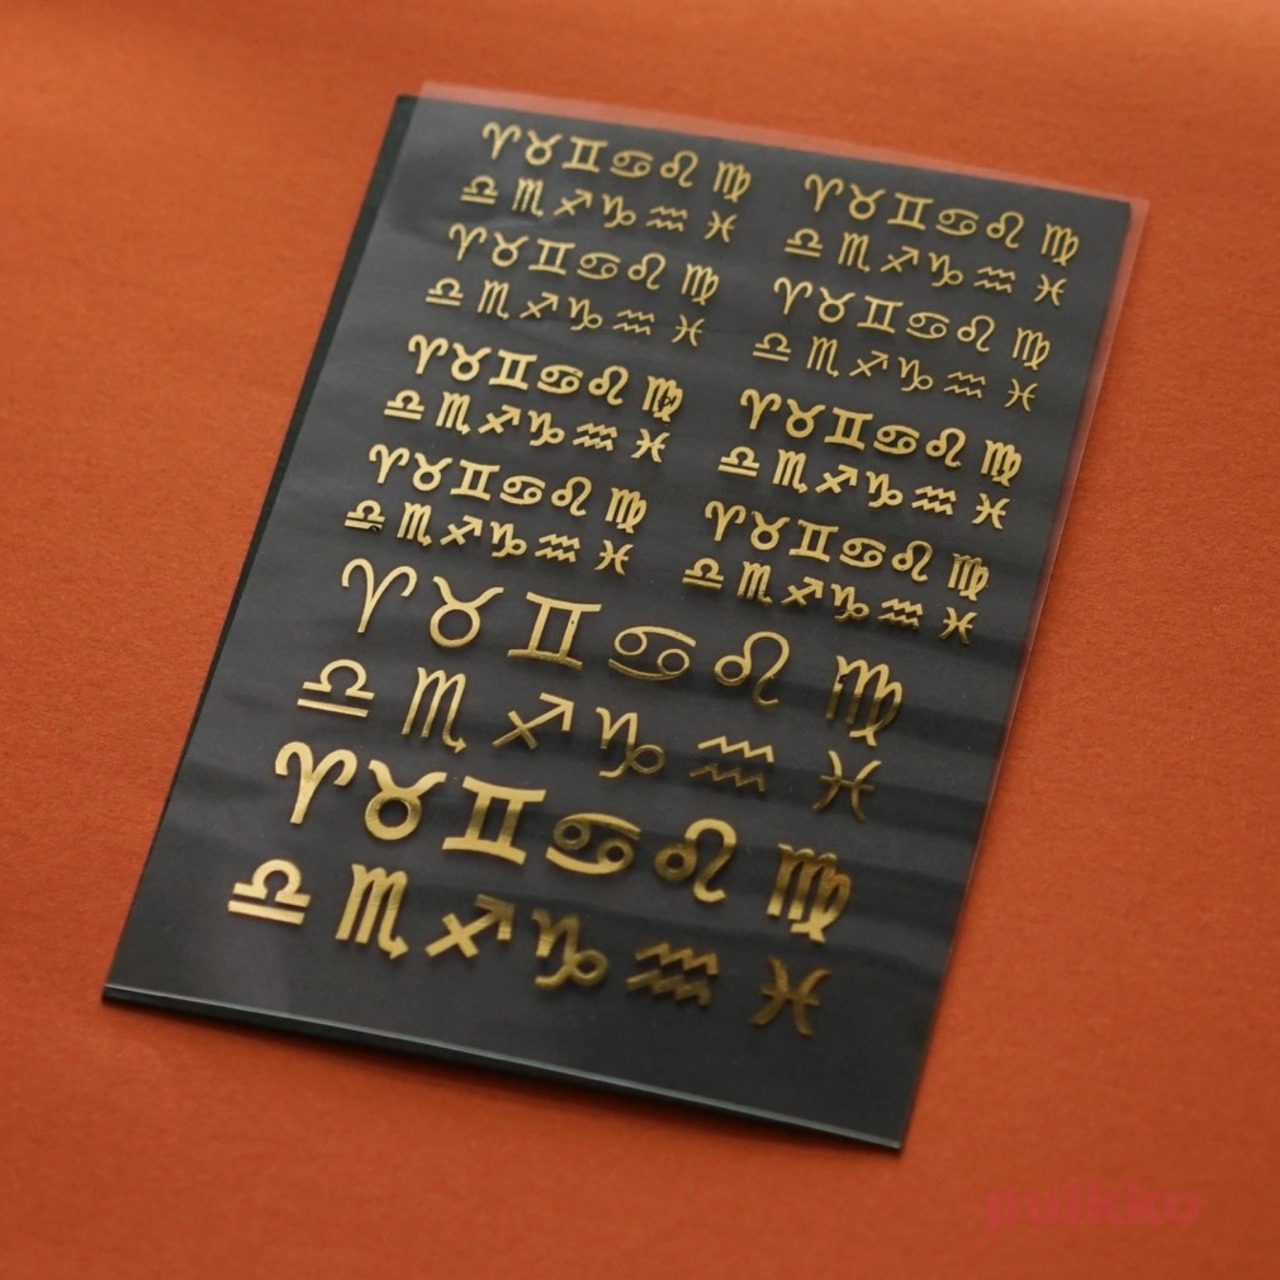 ♈♉♊♋♌♍
♎♏♐♑♒♓
♈♉♊♋♌♍
♎♏♐♑♒♓
♈♉♊♋♌♍
♎♏♐♑♒♓
♈♉♊♋♌♍
♎♏♐♑♒♓
♈♉♊♋♌♍
♎♏♐♑♒♓
♈♉♊♋♌♍
♎♏♐♑♒♓
♈♉♊♋♌♍
♎♏♐♑♒♓
♈♉♊♋♌♍
♎♏♐♑♒♓
♈♉♊♋♌♍
♎♏♐♑♒♓
♈♉♊♋♌♍
♎♏♐♑♒♓
puikko